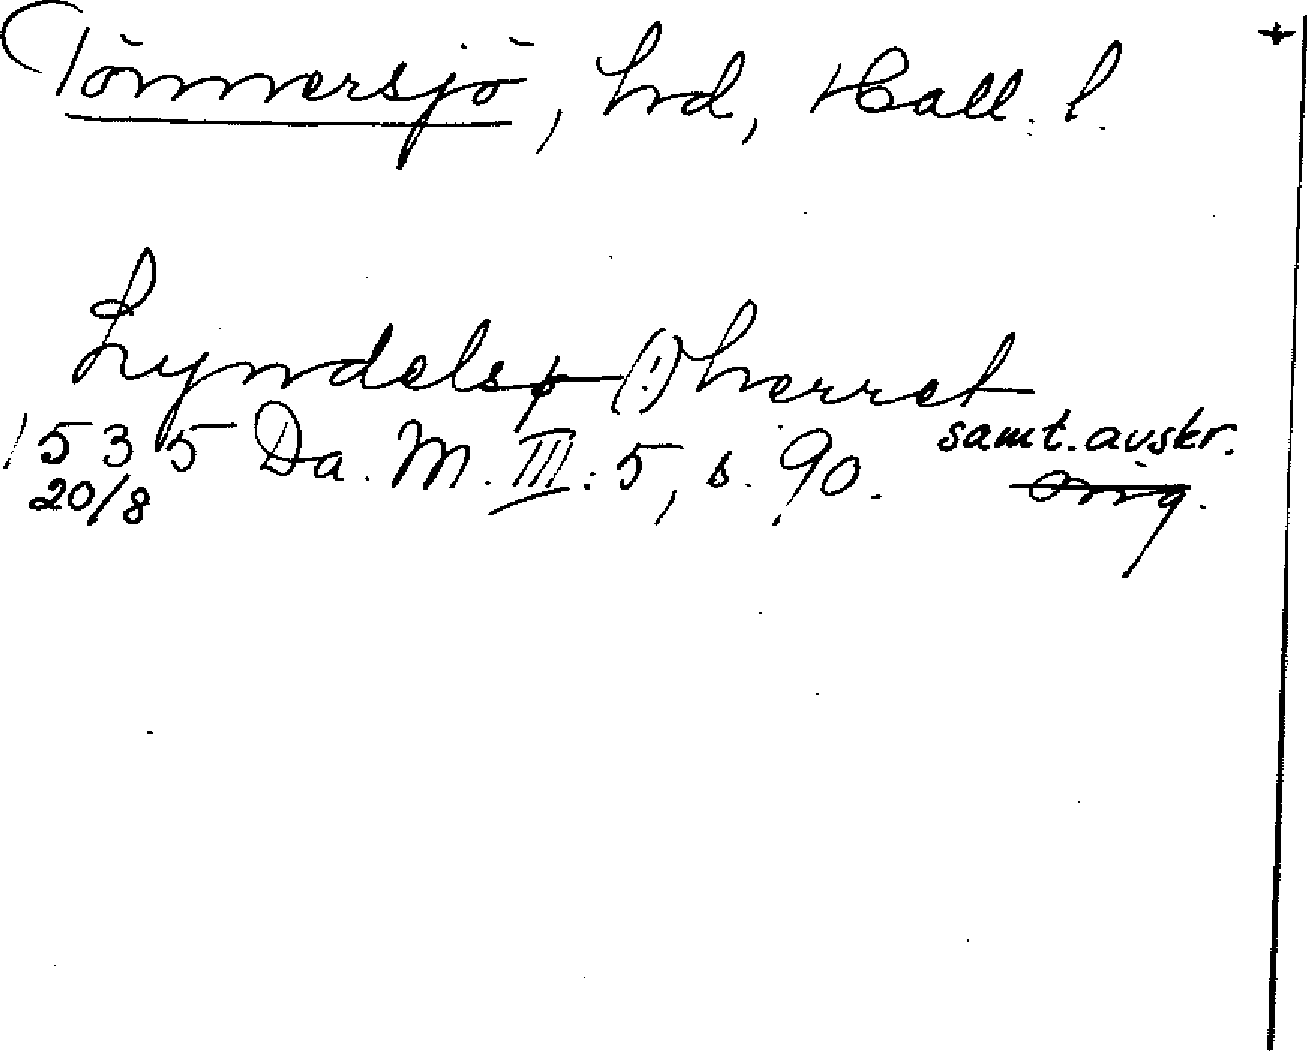 Tönnersjö, hrd, Hall. l. +
Lyndelsø (!) herret
1535 Da. M. III: 5, s. 90. samt. avskr.
20/8 orig.